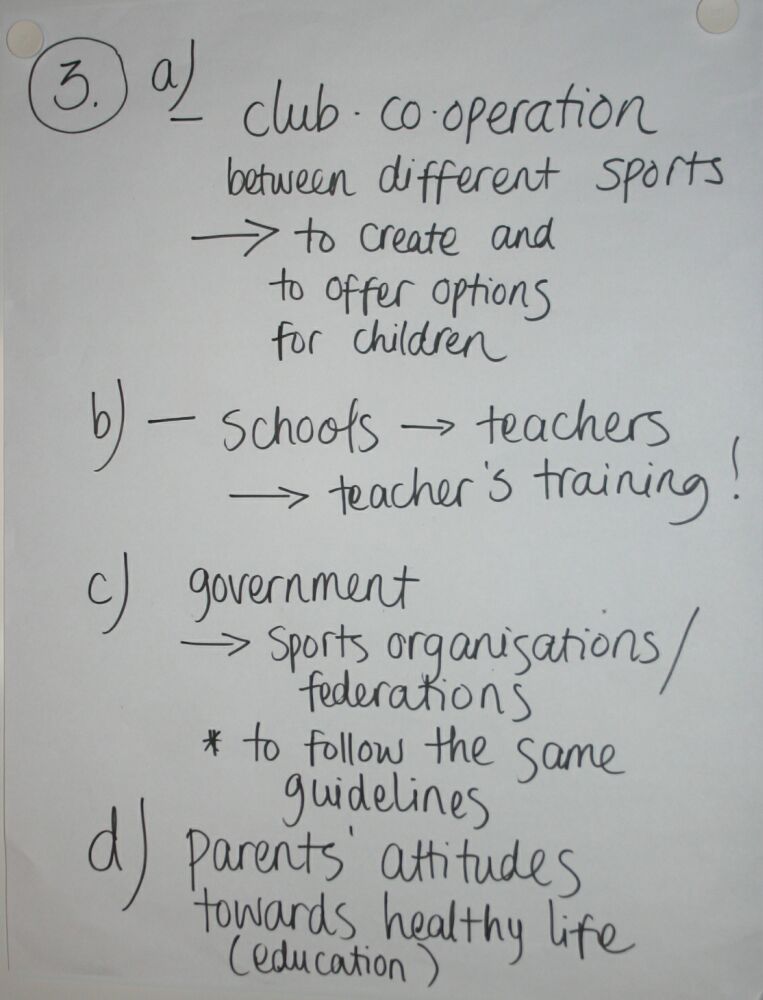 3. a) club · co·operation
between different sports
→ to create and
to offer options
for children
b) — schools → teachers
→ teacher's training!
c) government
→ sports organisations/
federations
* to follow the same
guidelines
d) parents' attitudes
towards healthy life
(education)